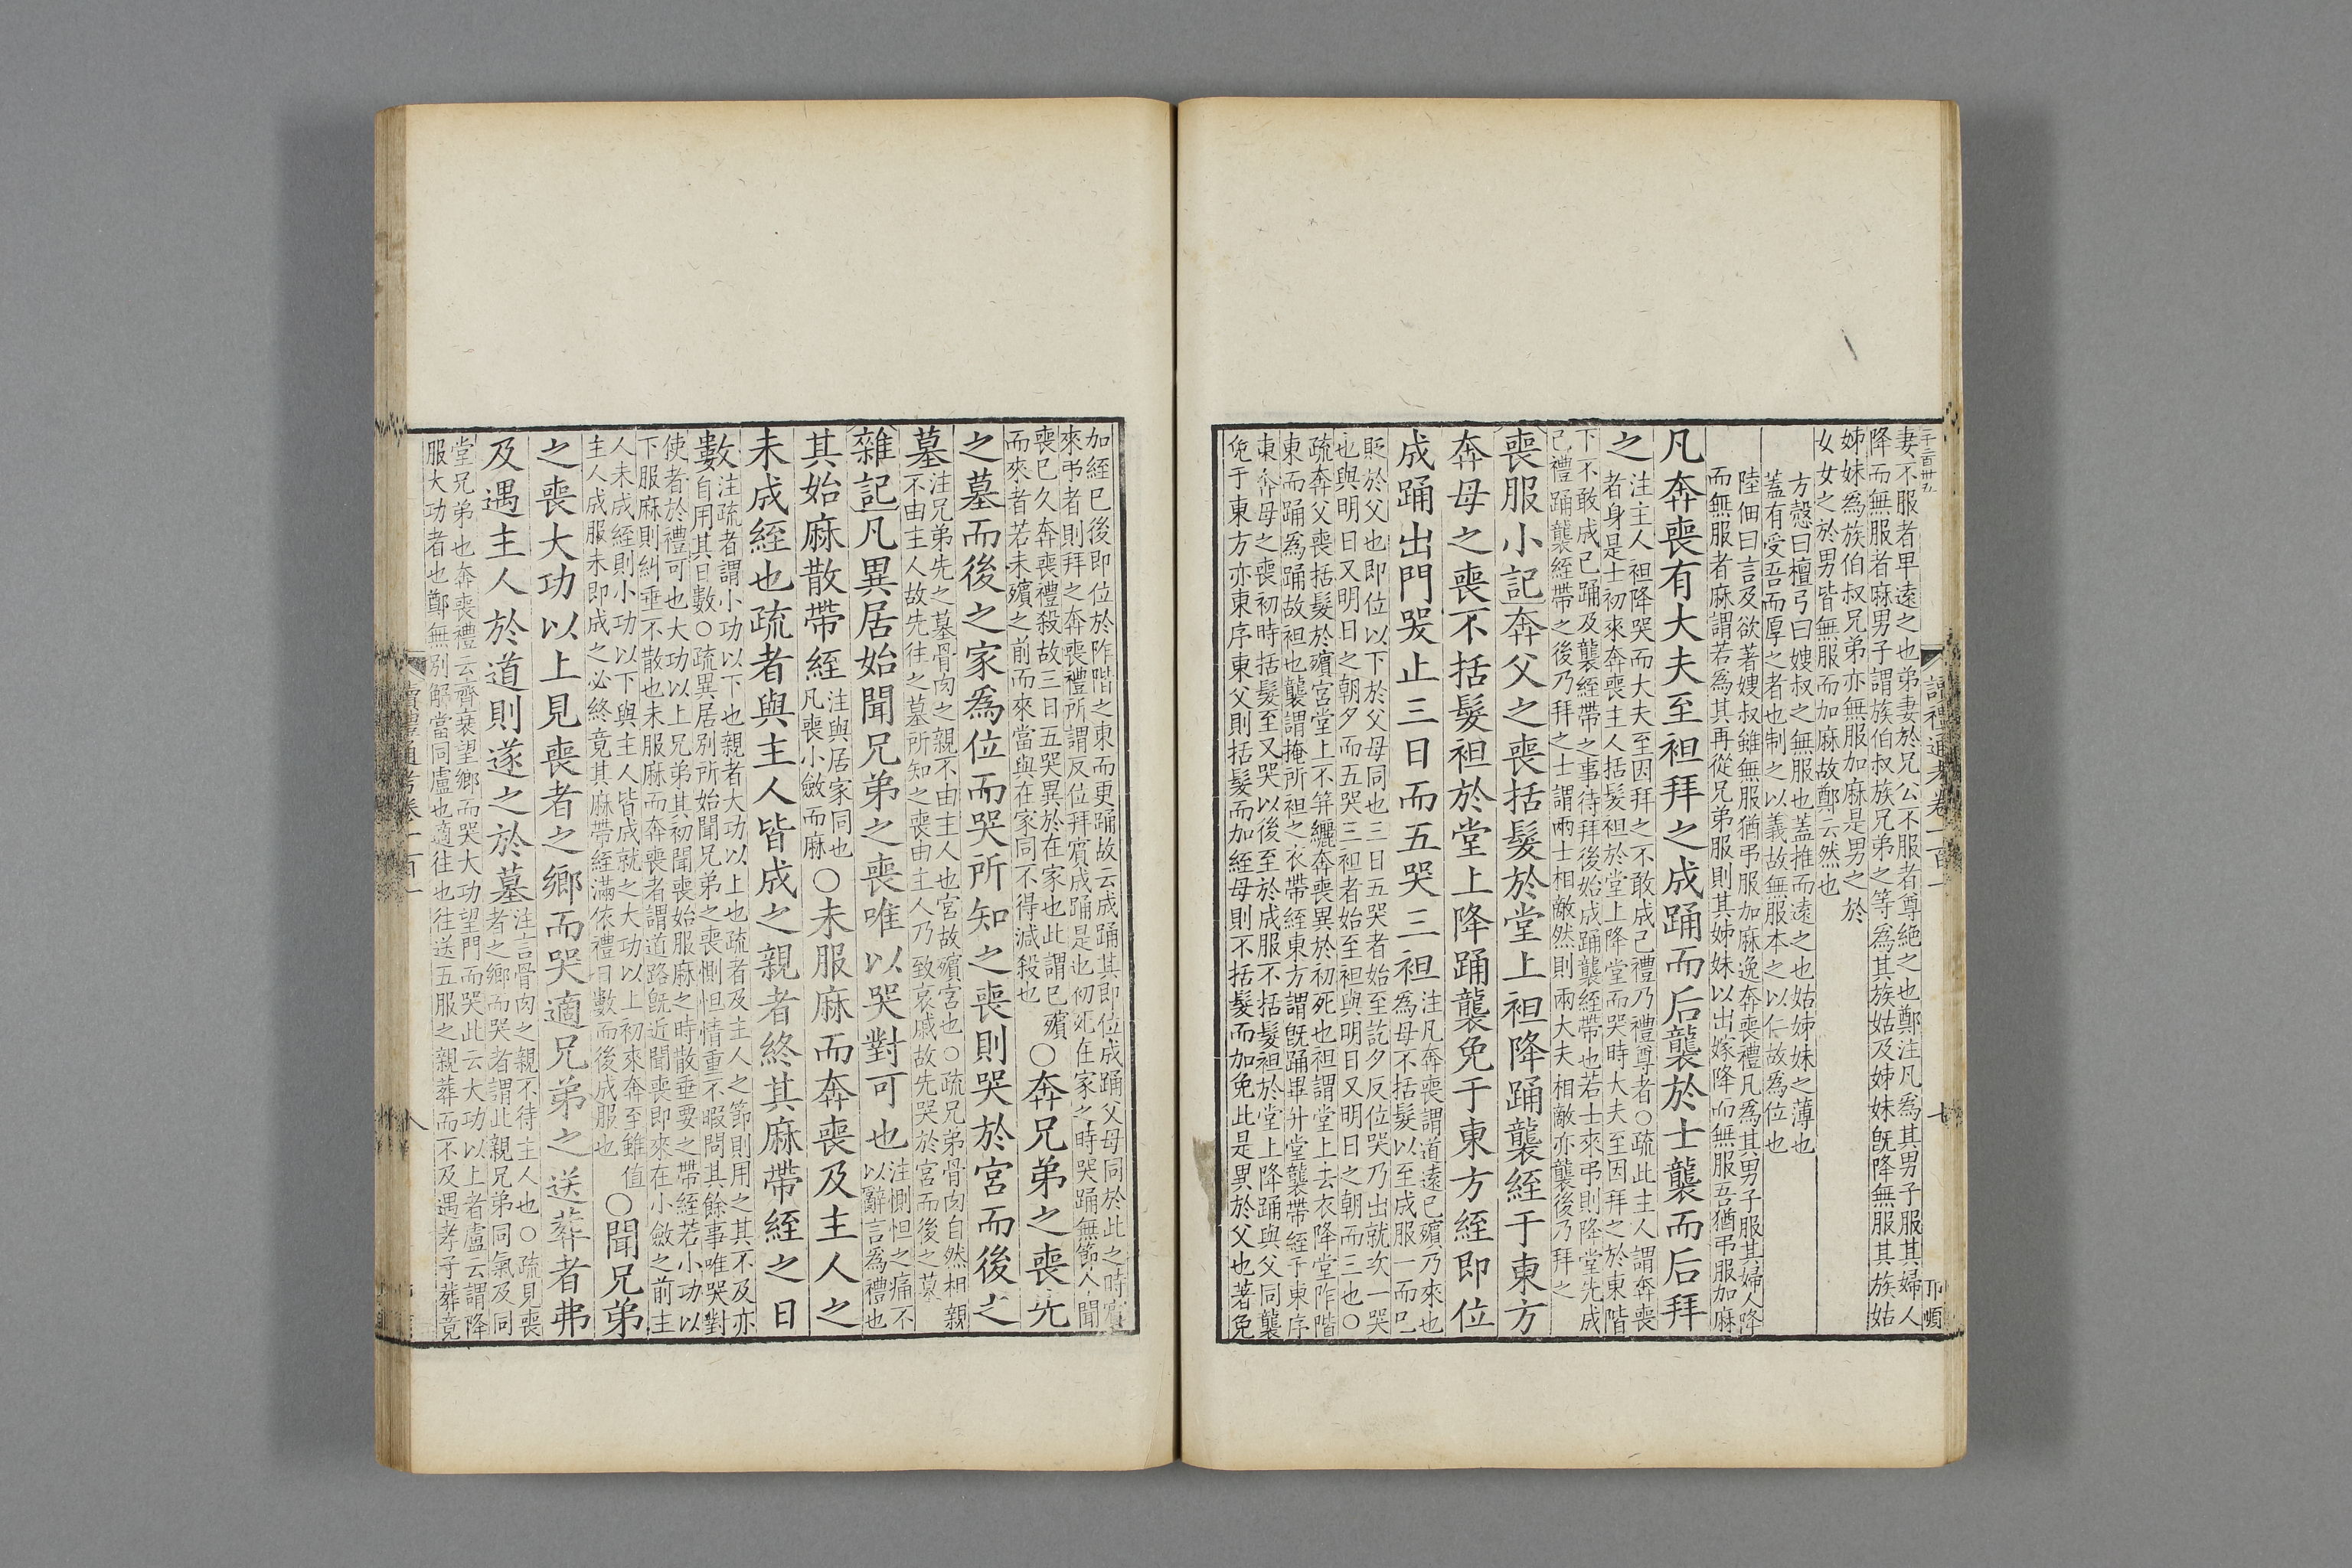 子二百卅五
讀禮通考卷一百一
七
妻不服者卑遠之也弟妻於兄公不服者尊絕之也鄭注凡爲其男子服其婦人
降而無服者麻男子謂族伯叔族兄弟之等爲其族姑及姊妹旣降無服其族姑
姊妹爲族伯叔兄弟亦無服加麻是男之於
女女之於男皆無服而加麻故鄭云然也
方慤曰檀弓曰嫂叔之無服也蓋推而遠之也姑姊妹之薄也
蓋有受吾而厚之者也制之以義故無服本之以仁故爲位也
陸佃曰言及欲著嫂叔雖無服猶弔服加麻逸奔喪禮凡爲其男子服其婦人降
而無服者麻謂若爲其再從兄弟服則其姊妹以出嫁降而無服吾猶弔服加麻
凡奔喪有大夫至袒拜之成踊而后襲於士襲而后拜
之
注主人袒降哭而大夫至因拜之不敢成己禮乃禮尊者○疏此主人謂奔喪
者身是士初來奔喪主人括髮袒於堂上降堂而哭時大夫至因拜之於東階
下不敢成已踊及襲絰帶之事待拜後始成踊襲絰帶也若士來弔則降堂先成
己禮踊襲絰帶之後乃拜之士謂兩士相敵然則兩大夫相敵亦襲後乃拜之
喪服小記奔父之喪括髮於堂上袒降踊襲絰于東方
奔母之喪不括髮袒於堂上降踊襲免于東方絰即位
成踊出門哭止三日而五哭三袒
注凡奔喪謂道遠已殯乃來也
爲母不括髮以至成服一而已
貶於父也即位以下於父母同也三日五哭者始至訖夕反位哭乃出就次一哭
也與明日又明日之朝夕而五哭三袒者始至袒與明日又明日之朝而三也○
疏奔父喪括髮於殯宮堂上不笄纚奔喪異於初死也袒謂堂上去衣降堂阼階
東而踊爲踊故袒也襲謂掩所袒之衣帶絰東方謂旣踊畢升堂襲帶絰于東序
東奔母之喪初時括髮至又哭以後至於成服不括髮袒於堂上降踊與父同襲
免于東方亦東序東父則括髮而加絰母則不括髮而加免此是異於父也著免
加絰已後即位於阼階之東而更踊故云成踊其即位成踊父母同於此之時賓
來弔者則拜之奔喪禮所謂反位拜賓成踊是也初死在家之時哭踊無節今聞
喪已久奔喪禮殺故三日五哭異於在家也此謂已殯
而來者若未殯之前而來當與在家同不得減殺也
○奔兄弟之喪先
之墓而後之家爲位而哭所知之喪則哭於宮而後之
墓
注兄弟先之墓骨肉之親不由主人也宮故殯宮也○疏兄弟骨肉自然相親
不由主人故先往之墓所知之喪由主人乃致哀戚故先哭於宮而後之墓
雜記凡異居始聞兄弟之喪唯以哭對可也
注惻怛之痛不
以辭言爲禮也
其始麻散帶絰
注與居家同也
凡喪小斂而麻
○未服麻而奔喪及主人之
未成絰也疏者與主人皆成之親者終其麻帶絰之日
數
注疏者謂小功以下也親者大功以上也疏者及主人之節則用之其不及亦
自用其日數○疏異居別所始聞兄弟之喪惻怛情重不暇問其餘事唯哭對
使者於禮可也大功以上兄弟其初聞喪始服麻之時散垂要之帶絰若小功以
下服麻則糾垂不散也未服麻而奔喪者謂道路旣近聞喪即來在小斂之前主
人未成絰則小功以下與主人皆成就之大功以上初來奔至雖值
主人成服未即成之必終竟其麻帶絰滿依禮日數而後成服也
○聞兄弟
之喪大功以上見喪者之鄉而哭適兄弟之送葬者弗
及遇主人於道則遂之於墓
注言骨肉之親不待主人也○疏見喪
者之鄉而哭者謂此親兄弟同氣及同
堂兄弟也奔喪禮云齊衰望鄉而哭大功望門而哭此云大功以上者盧云謂降
服大功者也鄭無別解當同盧也適往也往送五服之親葬而不及遇孝子葬竟
讀禮通考卷一百一
八